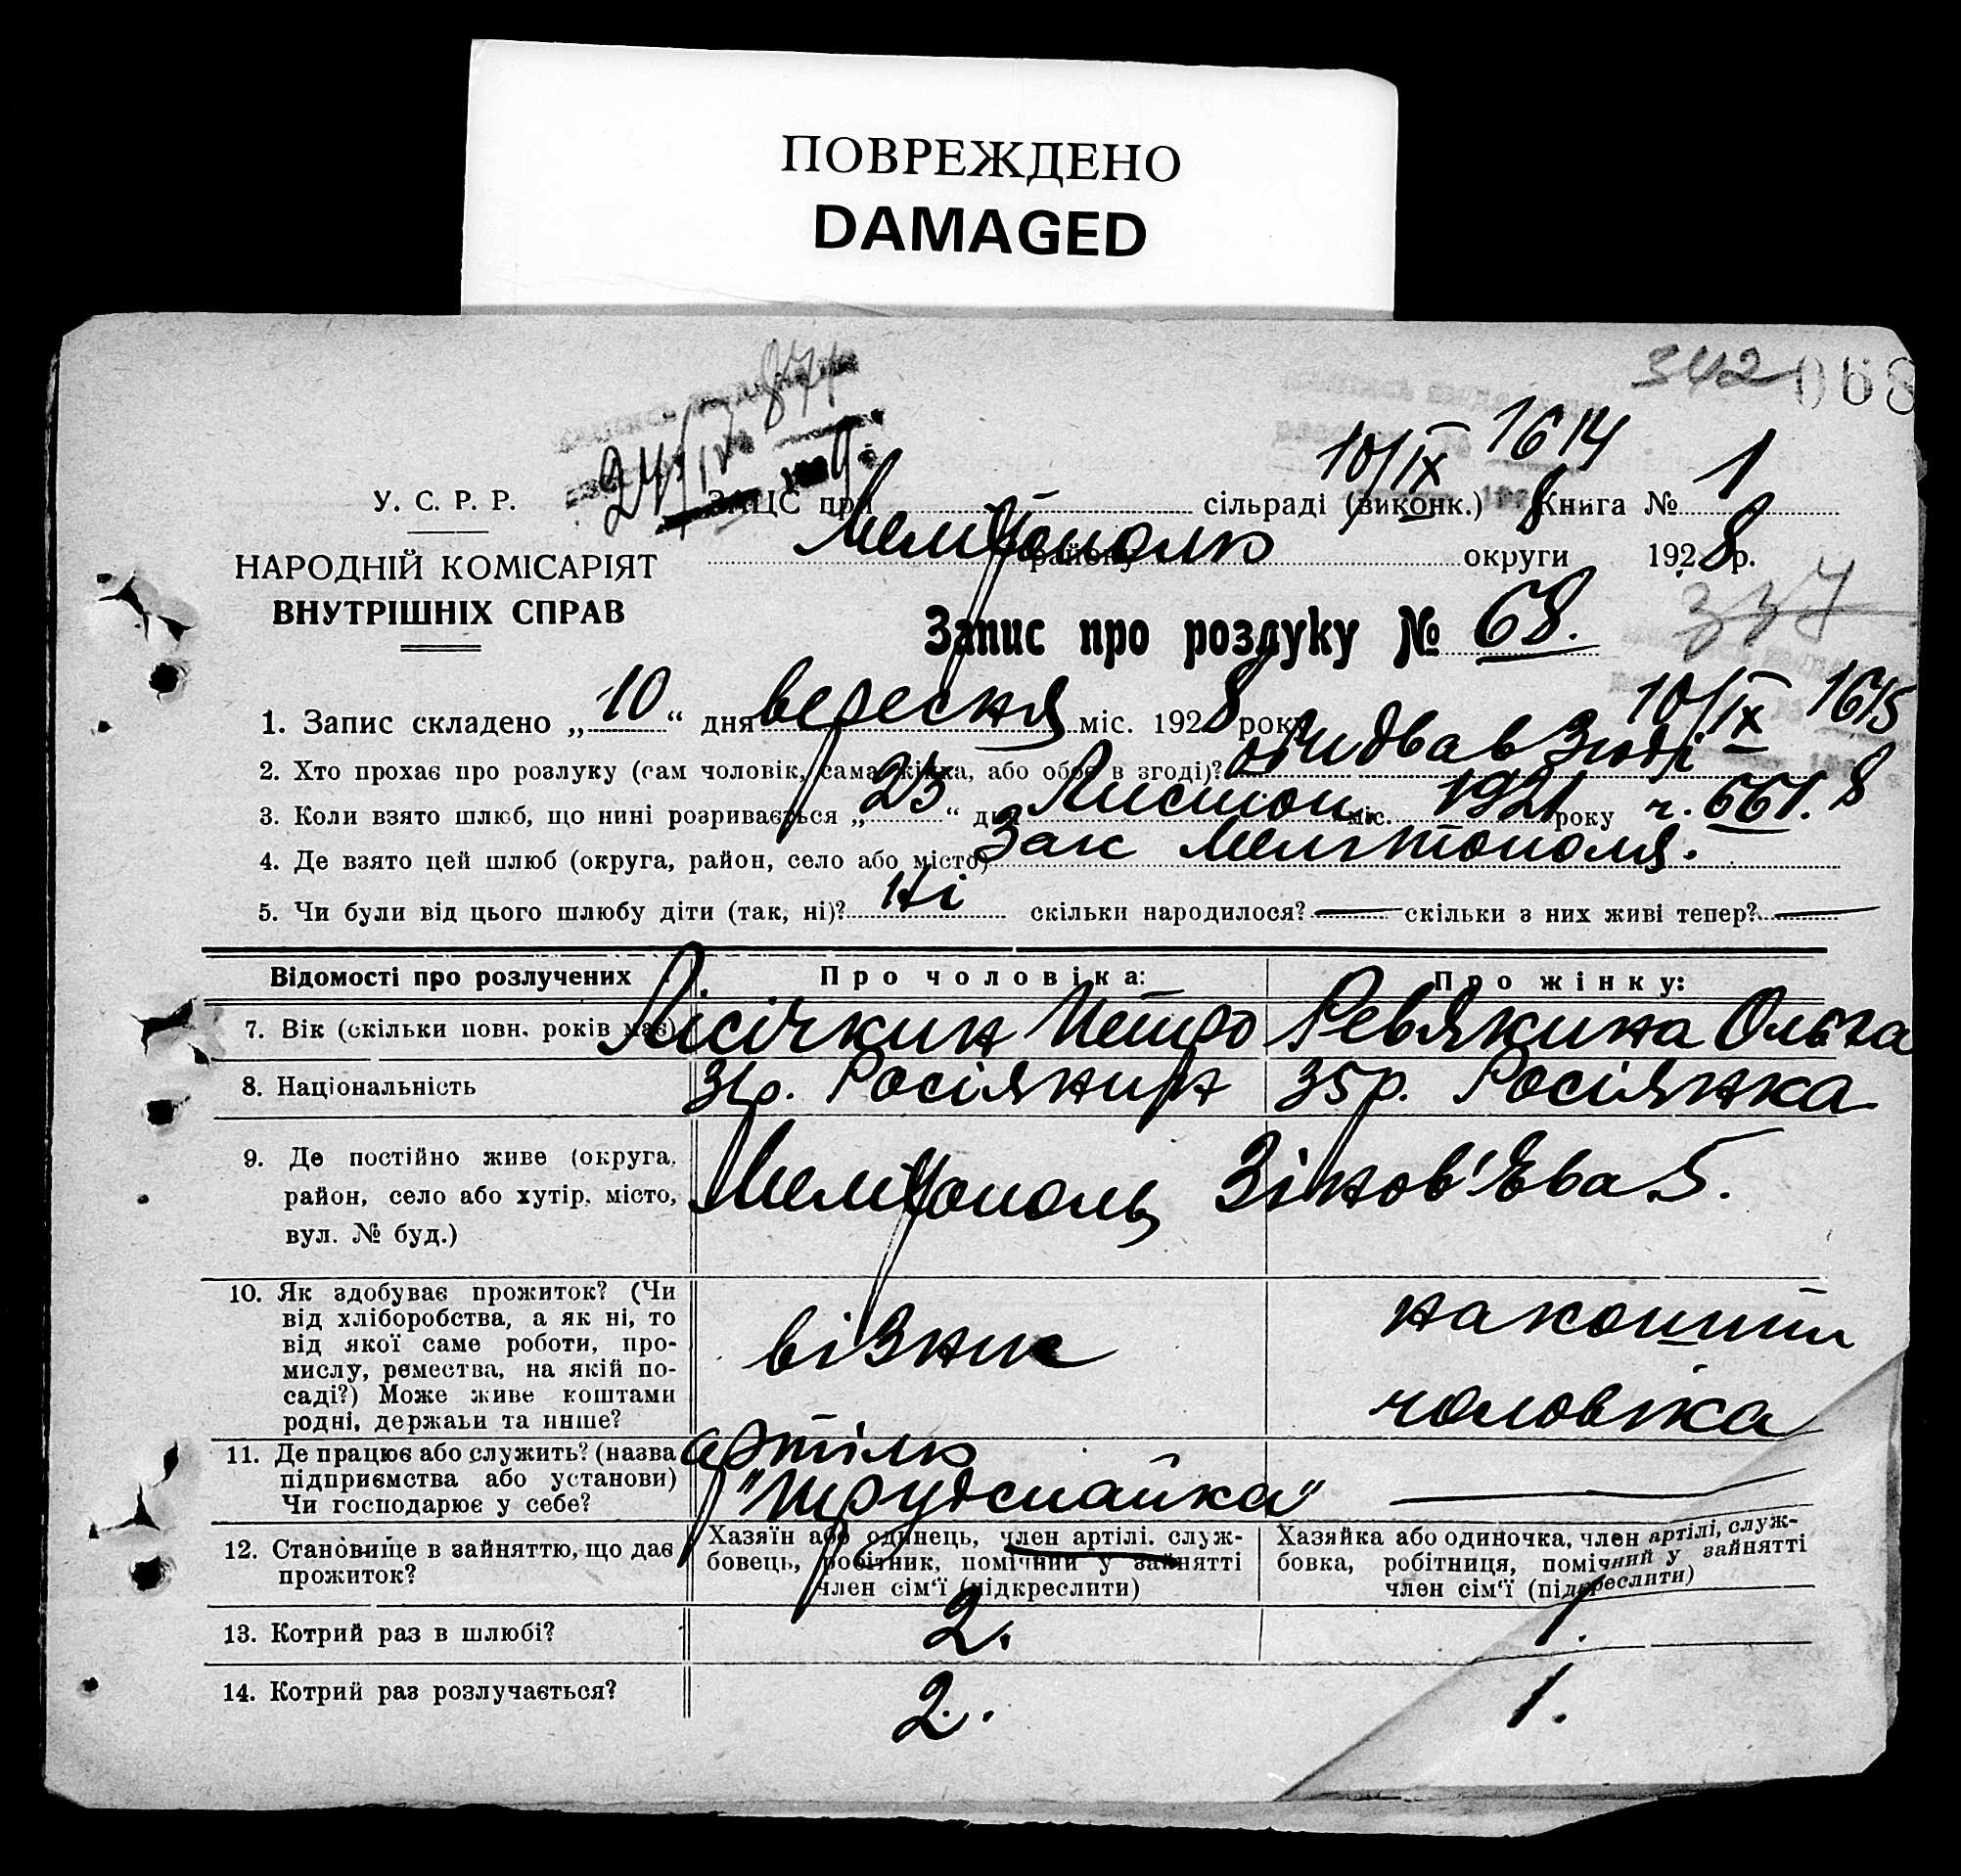 ПОВРЕЖДЕНО
DAMAGED
342 068
24/IV
10/IX 1614
У. С. Р. Р.
ЗАЦС при сільраді (виконк.) 8 Книга № 1
Мелітополь району округи 1928 р.
НАРОДНІЙ КОМІСАРІЯТ
ВНУТРІШНІХ СПРАВ
Запис про розлуку № 68.
337
10/IX 1615
1. Запис складено „10“ дня вересня міс. 1928 року
2. Хто прохає про розлуку (сам чоловік, сама жінка, або обоє в згоді)? обидва в згоді
3. Коли взято шлюб, що нині розривається „23“ дня Листоп. міс. 1921 року ч. 661. 8
4. Де взято цей шлюб (округа, район, село або місто) Загс Мелітополя.
5. Чи були від цього шлюбу діти (так, ні)? Ні скільки народилося? — скільки з них живі тепер? —
Відомості про розлучених
Про чоловіка:
Про жінку:
7. Вік (скільки повн. років має)
Лісічкин Петро
Ревякина Ольга
8. Національність
31р. Росіянин
35р. Росіянка
9. Де постійно живе (округа,
район, село або хутір, місто,
вул. № буд.)
Мелітополь Зінов'єва 5.
10. Як здобуває прожиток? (Чи
від хліборобства, а як ні, то
від якої саме роботи, про-
мислу, ремества, на якій по-
саді?) Може живе коштами
родні, держави та инше?
візник
на кошти
чоловіка
11. Де працює або служить? (назва
підприємства або установи)
Чи господарює у себе?
артіль
"Трудспайка"
—
12. Становище в зайняттю, що дає
прожиток?
Хазяїн або одинець, член артілі, служ-
бовець, робітник, помічний у зайнятті
член сім'ї (підкреслити)
Хазяйка або одиночка, член артілі, служ-
бовка, робітниця, помічний у зайнятті
член сім'ї (підкреслити)
13. Котрий раз в шлюбі?
2.
1.
14. Котрий раз розлучається?
2.
1.